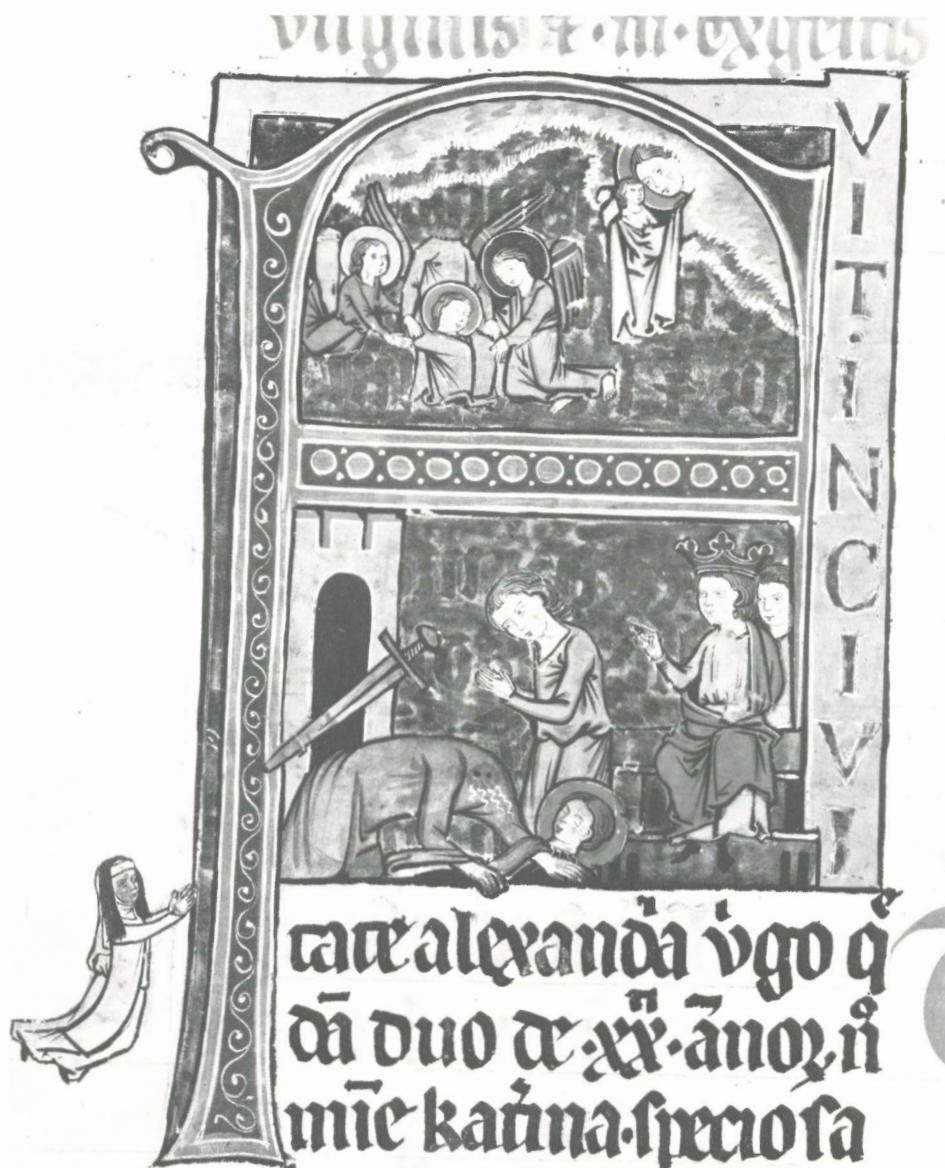 virginis
F
VIT·INCIVI
tate alexand͛a v͛go q̄
dā duo de·xx·ānoꝝ nͦ
mīe kat͛ina·speciosa